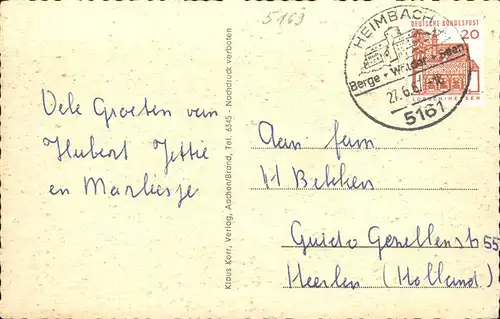 5169
HEIMBACH
Berge + Wälder + Seen
27.6.
5161
DEUTSCHE BUNDESPOST
20
LORSCH/HESSEN
Vele Groeten van
Hubert Jettie
en Marliesje
Klaus Korr, Verlag, Aachen/Brand, Tel. 6345 - Nachdruck verboten
Aan fam
H Bekkers
Guido Gezellenstr 55
Heerlen (Holland)